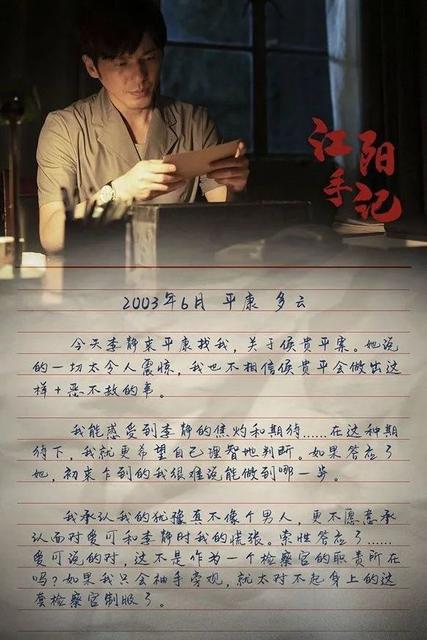 江阳
手记
2003年6月 平康 多云
今天李静来平康找我，关于侯贵平案。她说
的一切太令人震惊，我也不相信侯贵平会做出这
样十恶不赦的事。
我能感受到李静的焦灼和期待……在这种期
待下，我就更希望自己理智地判断。如果答应了
她，初来乍到的我很难说能做到哪一步。
我承认我的犹豫真不像个男人，更不愿意承
认面对爱可和李静时我的慌张。索性答应了……
爱可说的对，这不是作为一个检察官的职责所在
吗？如果我只会袖手旁观，就太对不起身上的这
套检察官制服了。